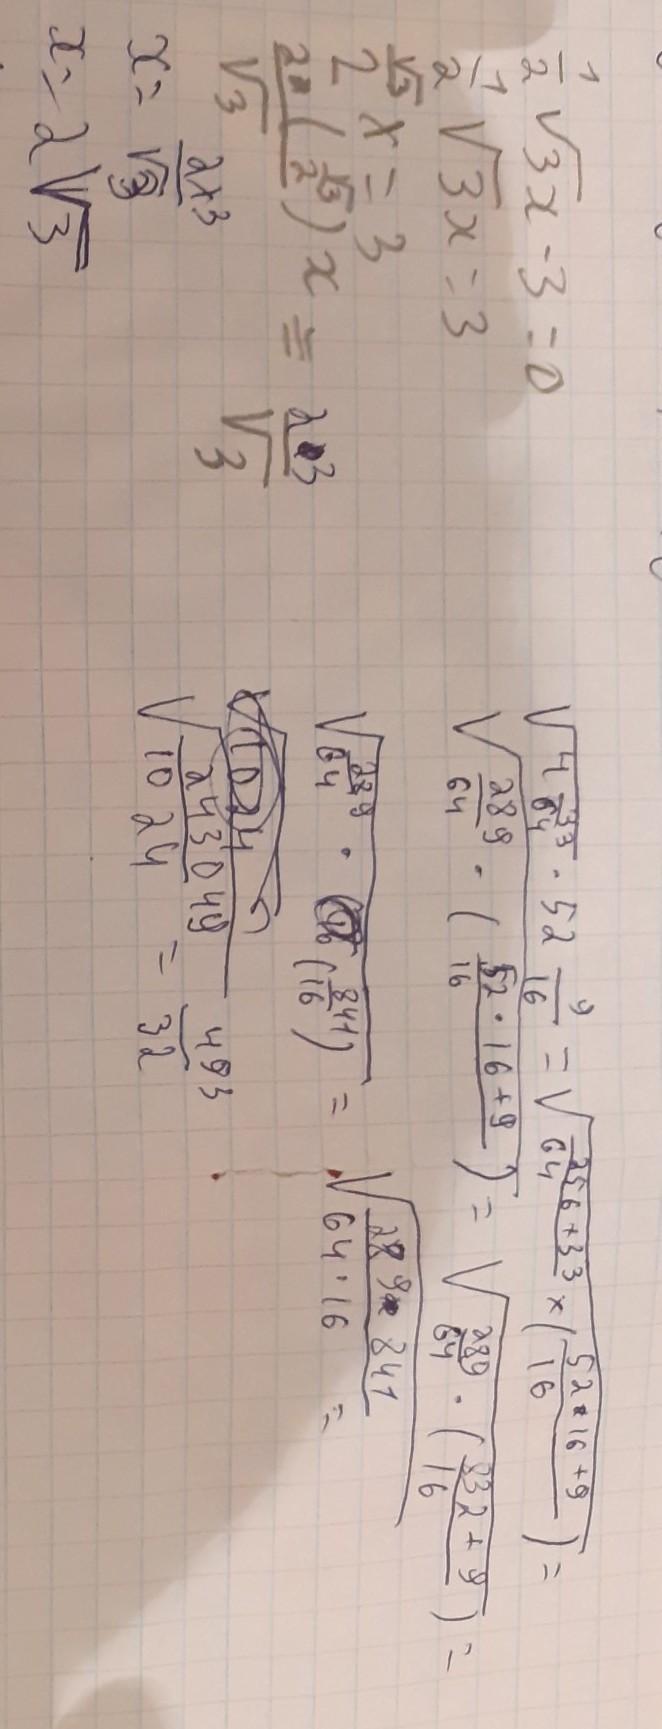 1/2 √3x - 3 = 0
1/2 √3x = 3
√3/2 x = 3
2·(√3/2)x / √3 = 2·3/√3
x = 2×3/√3
x = 2√3
√(4 33/64 · 52 9/16) = √(256+33/64 × (52·16+9/16)) =
√(289/64 · (52·16+9/16)) = √(289/64 · (832+9/16)) =
√(289/64 · (841/16)) = √(289·841/64·16) =
√(243049/1024) = 493/32